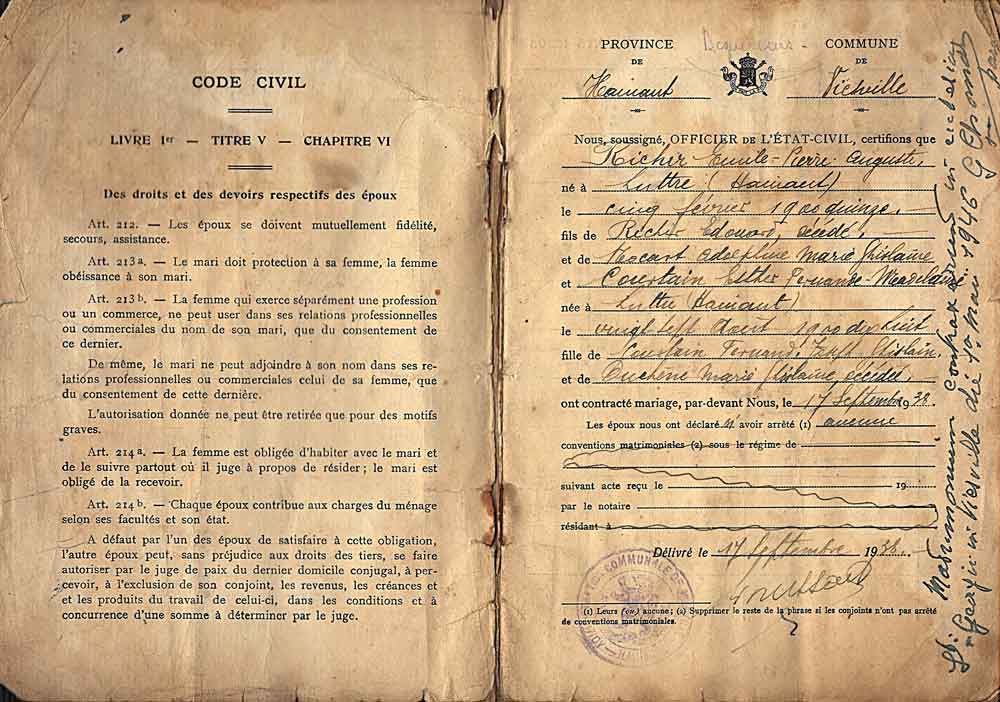 CODE CIVIL
LIVRE 1er — TITRE V — CHAPITRE VI
Des droits et des devoirs respectifs des époux
Art. 212. — Les époux se doivent mutuellement fidélité,
secours, assistance.
Art. 213a. — Le mari doit protection à sa femme, la femme
obéissance à son mari.
Art. 213b. — La femme qui exerce séparément une profession
ou un commerce, ne peut user dans ses relations professionnelles
ou commerciales du nom de son mari, que du consentement de
ce dernier.
De même, le mari ne peut adjoindre à son nom dans ses re-
lations professionnelles ou commerciales celui de sa femme, que
du consentement de cette dernière.
L'autorisation donnée ne peut être retirée que pour des motifs
graves.
Art. 214a. — La femme est obligée d'habiter avec le mari et
de le suivre partout où il juge à propos de résider; le mari est
obligé de la recevoir.
Art. 214b. — Chaque époux contribue aux charges du ménage
selon ses facultés et son état.
A défaut par l'un des époux de satisfaire à cette obligation,
l'autre époux peut, sans préjudice aux droits des tiers, se faire
autoriser par le juge de paix du dernier domicile conjugal, à per-
cevoir, à l'exclusion de son conjoint, les revenus, les créances et
et les produits du travail de celui-ci, dans les conditions et à
concurrence d'une somme à déterminer par le juge.
PROVINCE COMMUNE
DE DE
Hainaut Viesville
Nous, soussigné, OFFICIER DE L'ÉTAT-CIVIL, certifions que
Richer Emile-Pierre-Auguste,
né à Luttre (Hainaut)
le cinq février 1900quinze,
fils de Richer Edouard, décédé,
et de Hocart Adolphine Marie Ghislaine
et Courtain Esther Fernande
née à Luttre (Hainaut)
le vingt sept Août 1900dix huit,
fille de Courtain Fernand, Ghislain,
et de Duchêne Marie Ghislaine, décédée,
ont contracté mariage, par-devant Nous, le 17 Septembre 1938.
Les époux nous ont déclaré n' avoir arrêté (1) aucune
conventions matrimoniales (2) sous le régime de
suivant acte reçu le 19
par le notaire
résidant à
Délivré le 17 Septembre 1938.
(1) Leurs (ou) aucune; (2) Supprimer le reste de la phrase si les conjoints n'ont pas arrêté
de conventions matrimoniales.
COMMUNALE DE
Matrimonium in ecclesia
in Viesville die 1a maii 1946